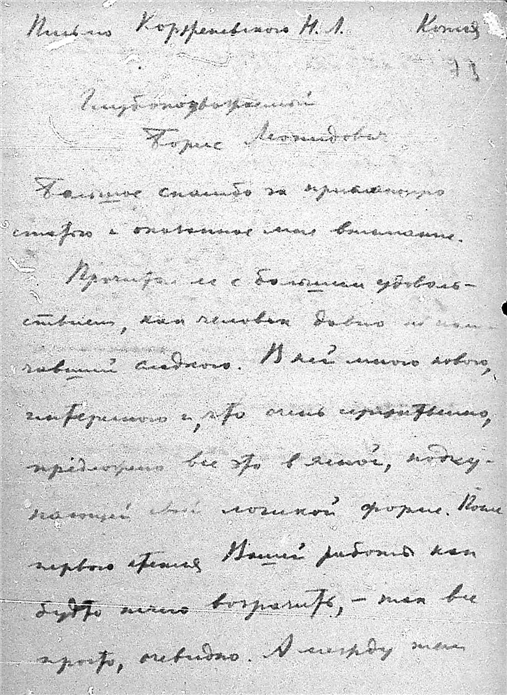 Письмо Корженевского Н. Л. Копия
Глубокоуважаемый
Борис Леонидович
Большое спасибо за присланную
статью и оказанное мне внимание.
Прочитал ее с большим удоволь-
ствием, как человек давно не
чавший сладкого. В ней много нового,
интересного и, что очень существенно,
предложено все это в ясной, подку-
пающей свой логикой форме. После
первого чтения Вашей работы как
будто нечего возразить, - так все
просто, очевидно. А между тем